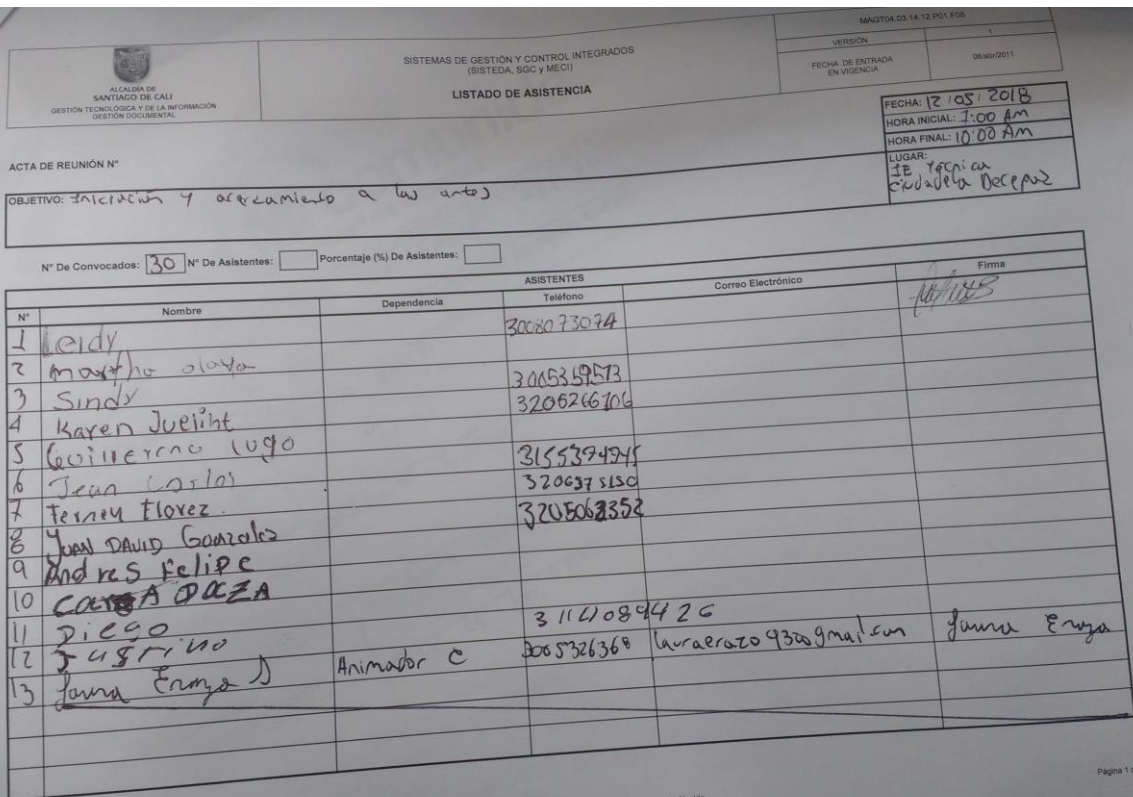 MAGT04.03.14.12.P01.F05
ALCALDÍA DE
SANTIAGO DE CALI
GESTIÓN TECNOLÓGICA Y DE LA INFORMACIÓN
GESTIÓN DOCUMENTAL
SISTEMAS DE GESTIÓN Y CONTROL INTEGRADOS
(SISTEDA, SGC y MECI)
LISTADO DE ASISTENCIA
VERSIÓN 1
FECHA DE ENTRADA EN VIGENCIA 08/abr/2011
FECHA: 12/05/2018
HORA INICIAL: 7:00 AM
HORA FINAL: 10:00 AM
LUGAR:
IE Tecnica
Ciudadela Decepaz
ACTA DE REUNIÓN N°
OBJETIVO: Iniciación y acercamiento a las artes
N° De Convocados: 30 N° De Asistentes: Porcentaje (%) De Asistentes:
ASISTENTES
N° Nombre Dependencia Teléfono Correo Electrónico Firma
1 Leidy 3008073074
2 martha olaya
3 Sindy 3005359573
4 Karen Juelint 3206266106
5 Guillermo lugo
6 Jean Carlos 3155374945
7 Ferney Florez. 3206375130
8 JUAN DAVID Gonzalez 3205062352
9 Andres Felipe
10 DAZA
11 Diego
12 3114089426
13 Animador C 3005326368 Laura Erazo
Página 1